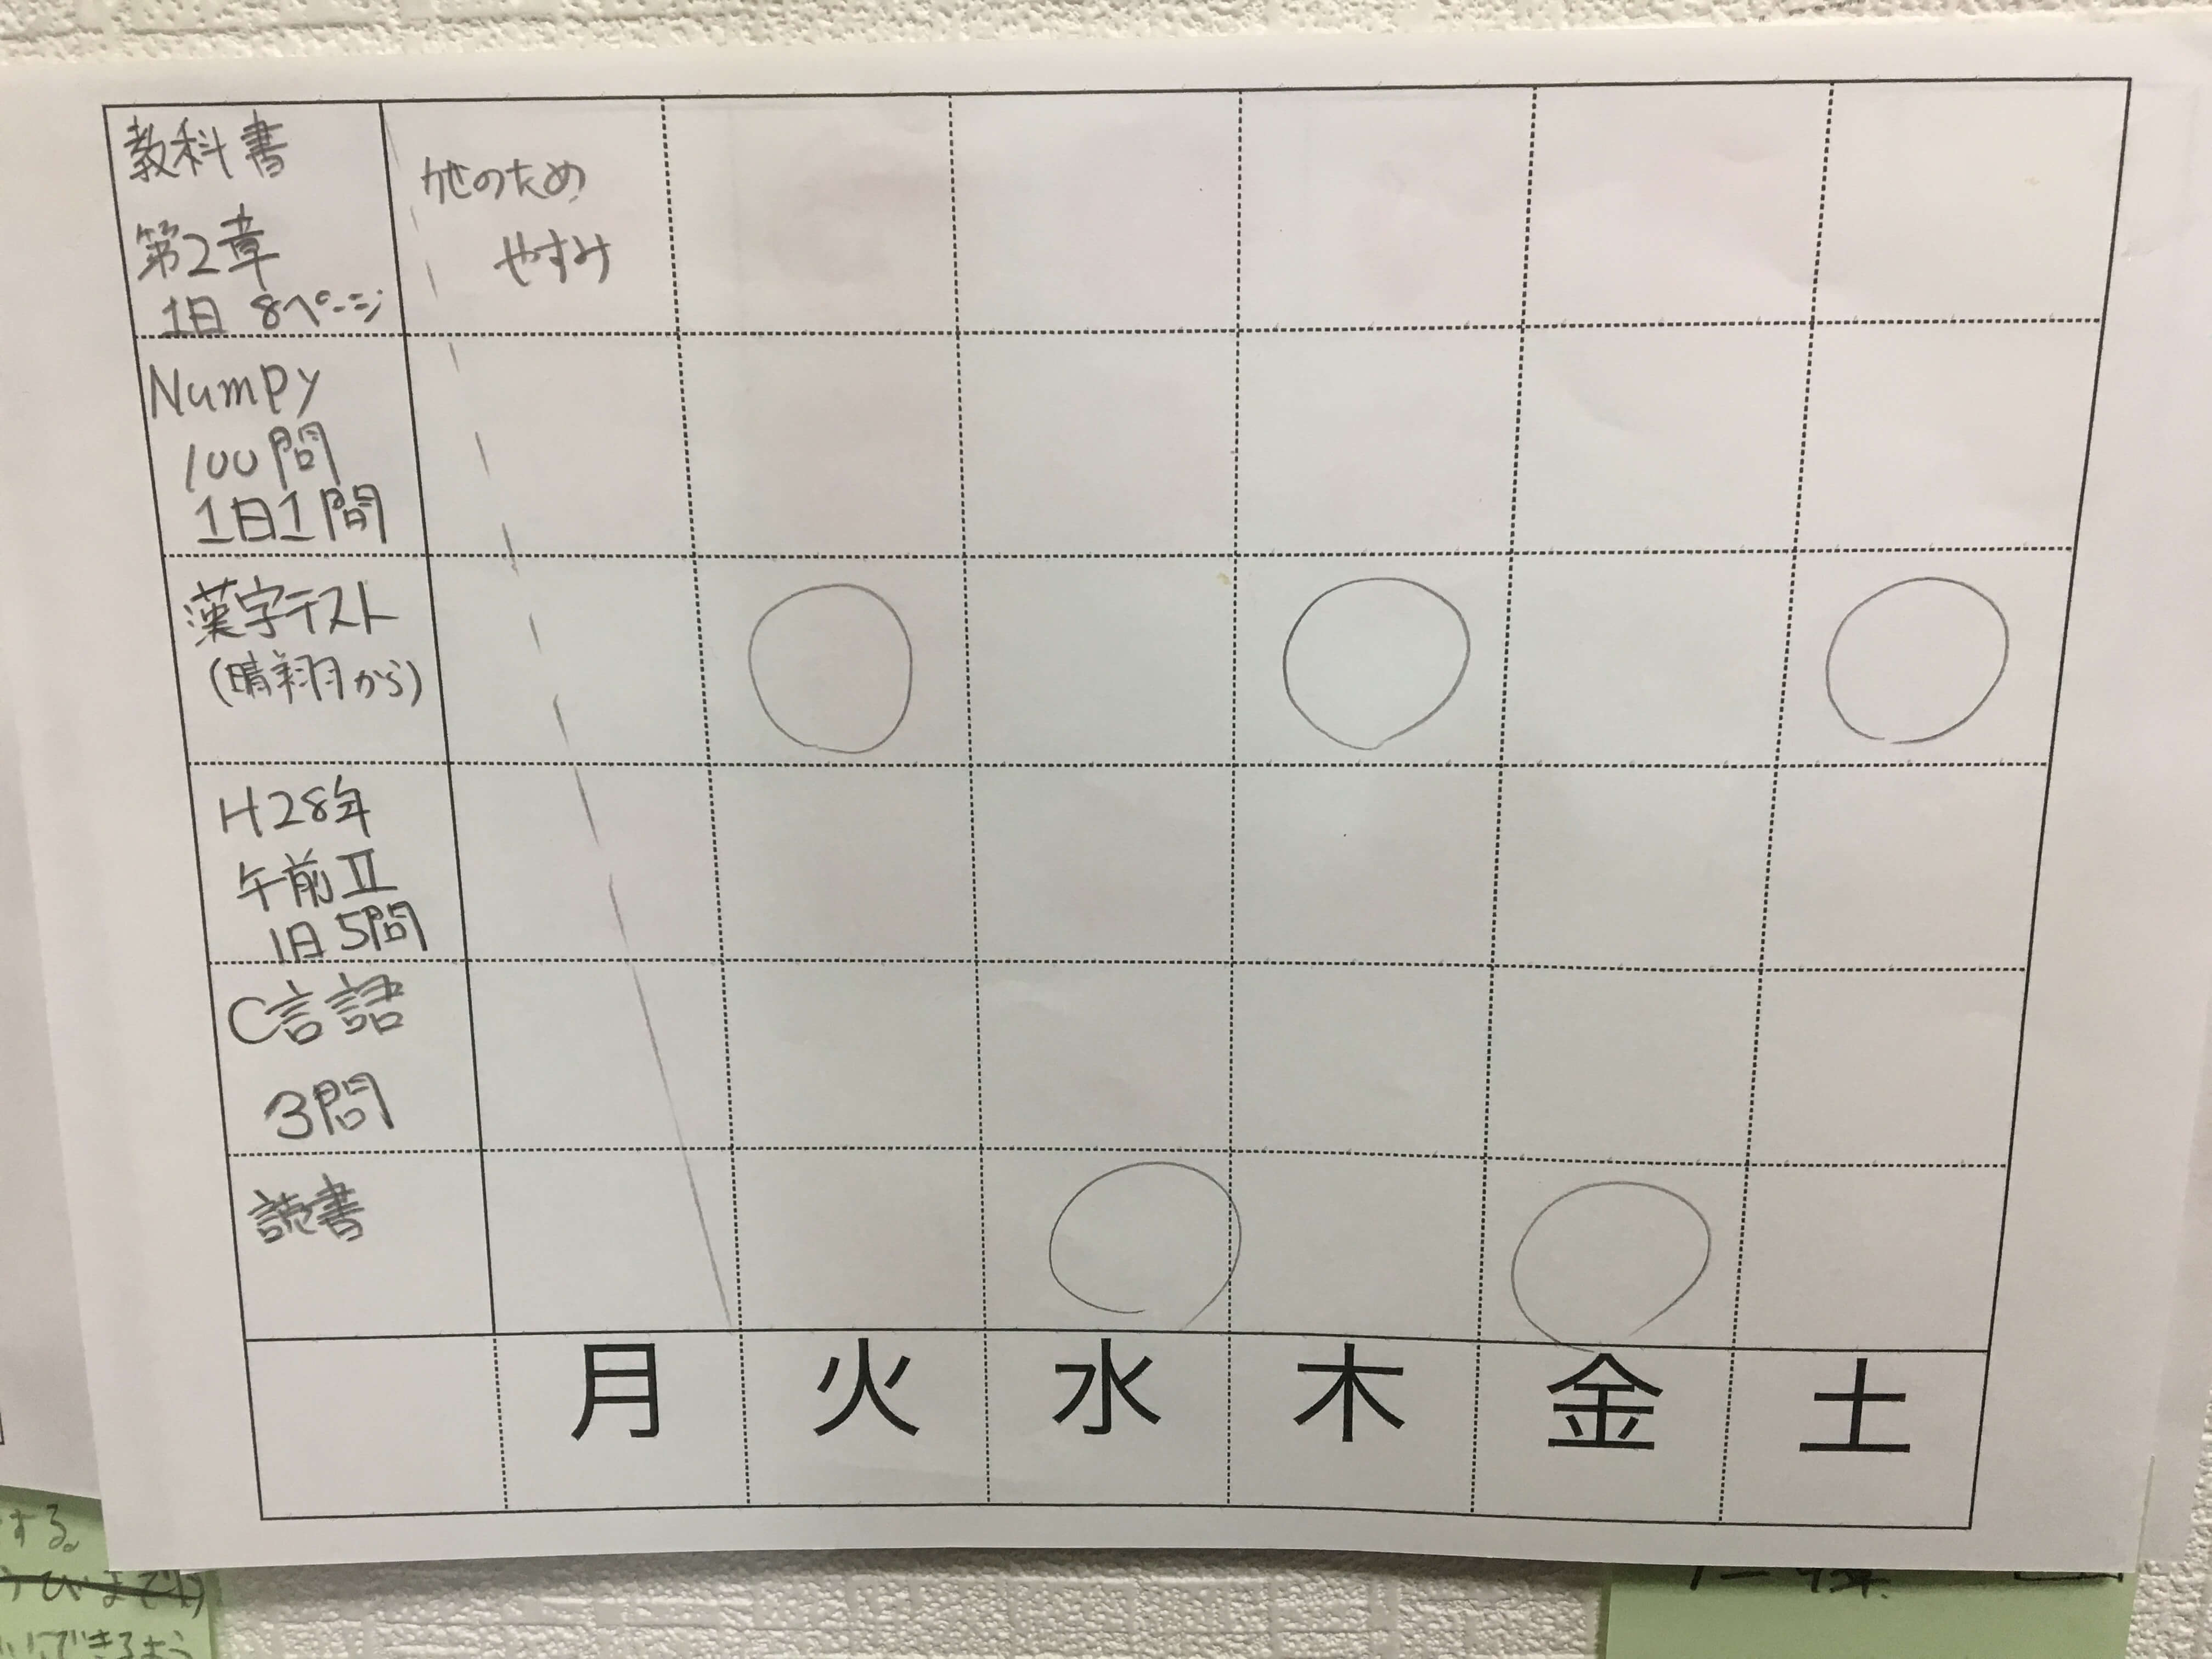 教科書
第2章
1日 8ページ
のため
やすみ
Numpy
100問
1日1問
漢字テスト
(晴翔から)
H28年
午前Ⅱ
1日5問
C言語
3問
読書
月 火 水 木 金 土
する。
にできるよう